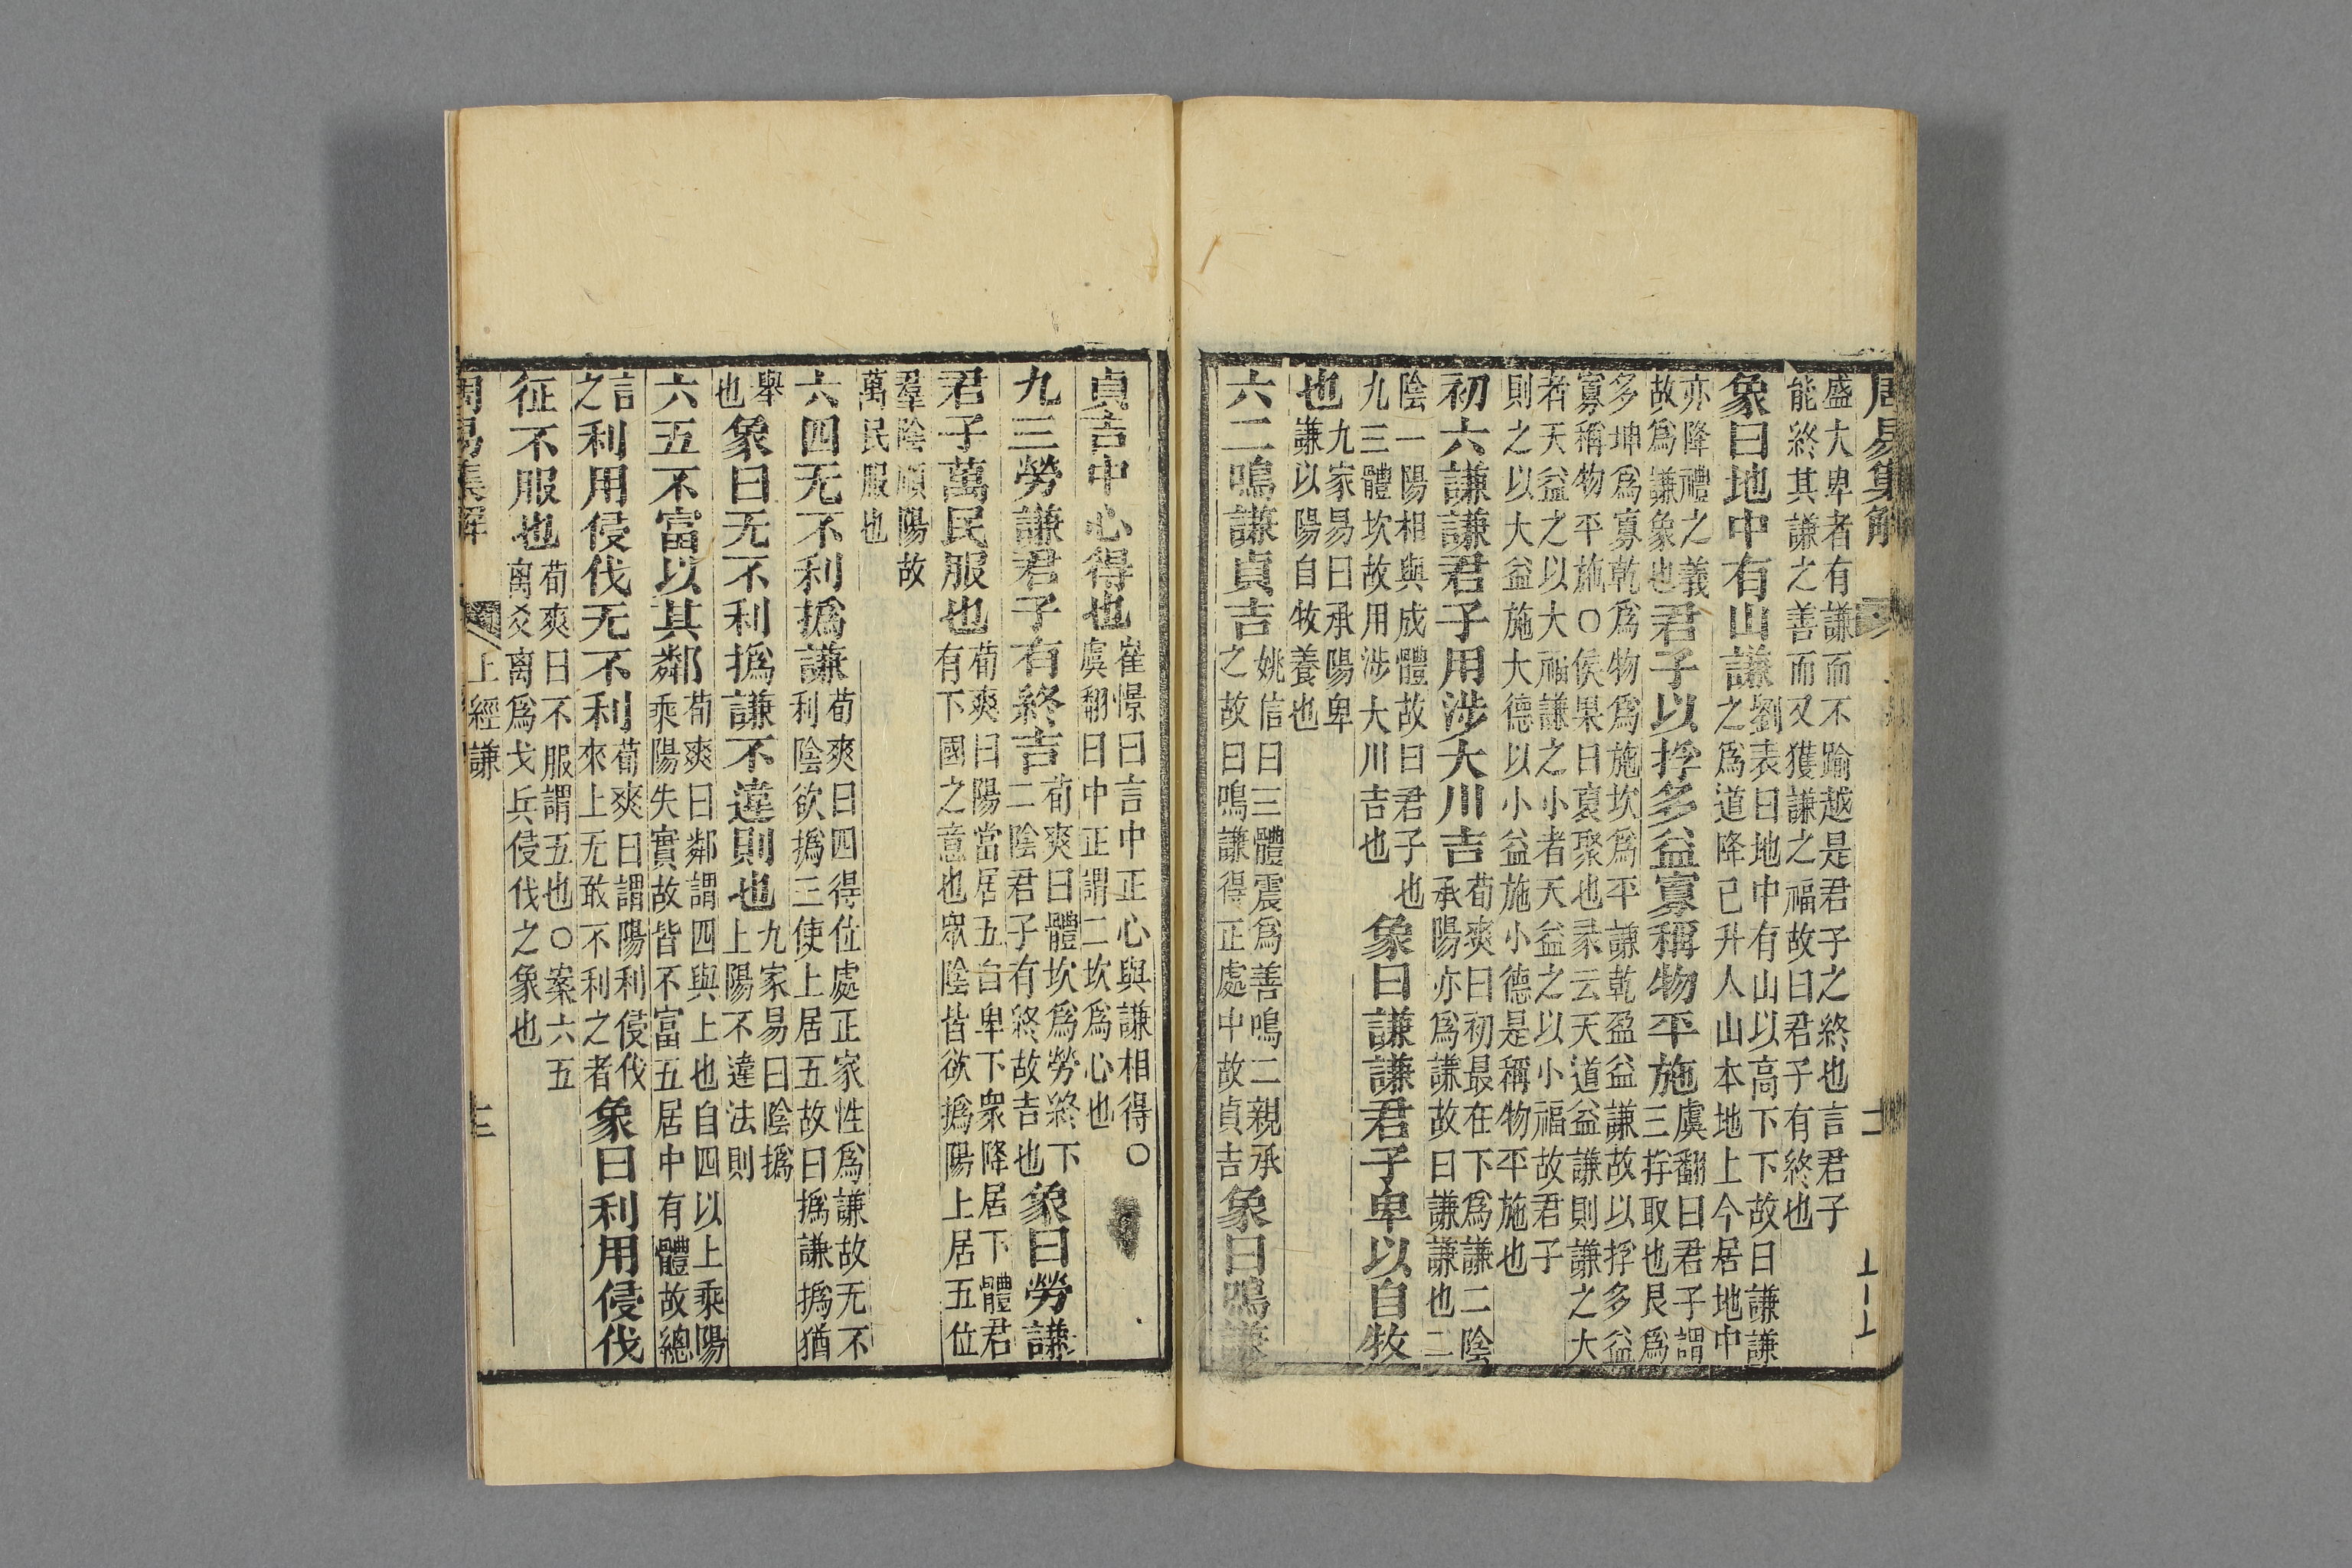 周易集解
盛大卑者有謙而不踰越是君子之終也言君子
能終其謙之善而又獲謙之福故曰君子有終也
象曰地中有山謙劉表曰地中有山以高下下故曰謙謙之爲道降已升人山本地上今居地中
亦降禮之義故爲謙象也君子以捊多益寡稱物平施虞翻曰君子謂三捊取也艮爲
多坤爲寡乾爲物爲施坎爲平謙乾盈益謙故以捊多益
寡稱物平施○侯果曰裒聚也彖云天道益謙則謙之大
者天益之以大福謙之小者天益之以小福故君子
則之以大益施大德以小益施小德是稱物平施也
初六謙謙君子用涉大川吉荀爽曰初最在下爲謙二陰承陽亦爲謙故曰謙謙也二
陰一陽相與成體故曰君子也九三體坎故用涉大川吉也象曰謙謙君子卑以自牧
也九家易曰承陽卑謙以陽自牧養也
六二鳴謙貞吉姚信曰三體震爲善鳴二親承之故曰鳴謙得正處中故貞吉象曰鳴謙
貞吉中心得也崔憬曰言中正心與謙相得○虞翻曰中正謂二坎爲心也
九三勞謙君子有終吉荀爽曰體坎爲勞終下二陰君子有終故吉也象曰勞謙
君子萬民服也荀爽曰陽當居五自卑下衆降居下體君有下國之意也眾陰皆欲撝陽上居五位
羣陰順陽故
萬民服也
六四无不利撝謙荀爽曰四得位處正家性爲謙故无不利陰欲撝三使上居五故曰撝謙撝猶
舉也象曰无不利撝謙不違則也九家易曰陰撝上陽不違法則
六五不富以其鄰荀爽曰鄰謂四與上也自四以上乘陽乘陽失實故皆不富五居中有體故總
言之利用侵伐无不利荀爽曰謂陽利侵伐來上无敢不利之者象曰利用侵伐
征不服也荀爽曰不服謂五也○案六五离爻离爲戈兵侵伐之象也
周易集解 上經謙